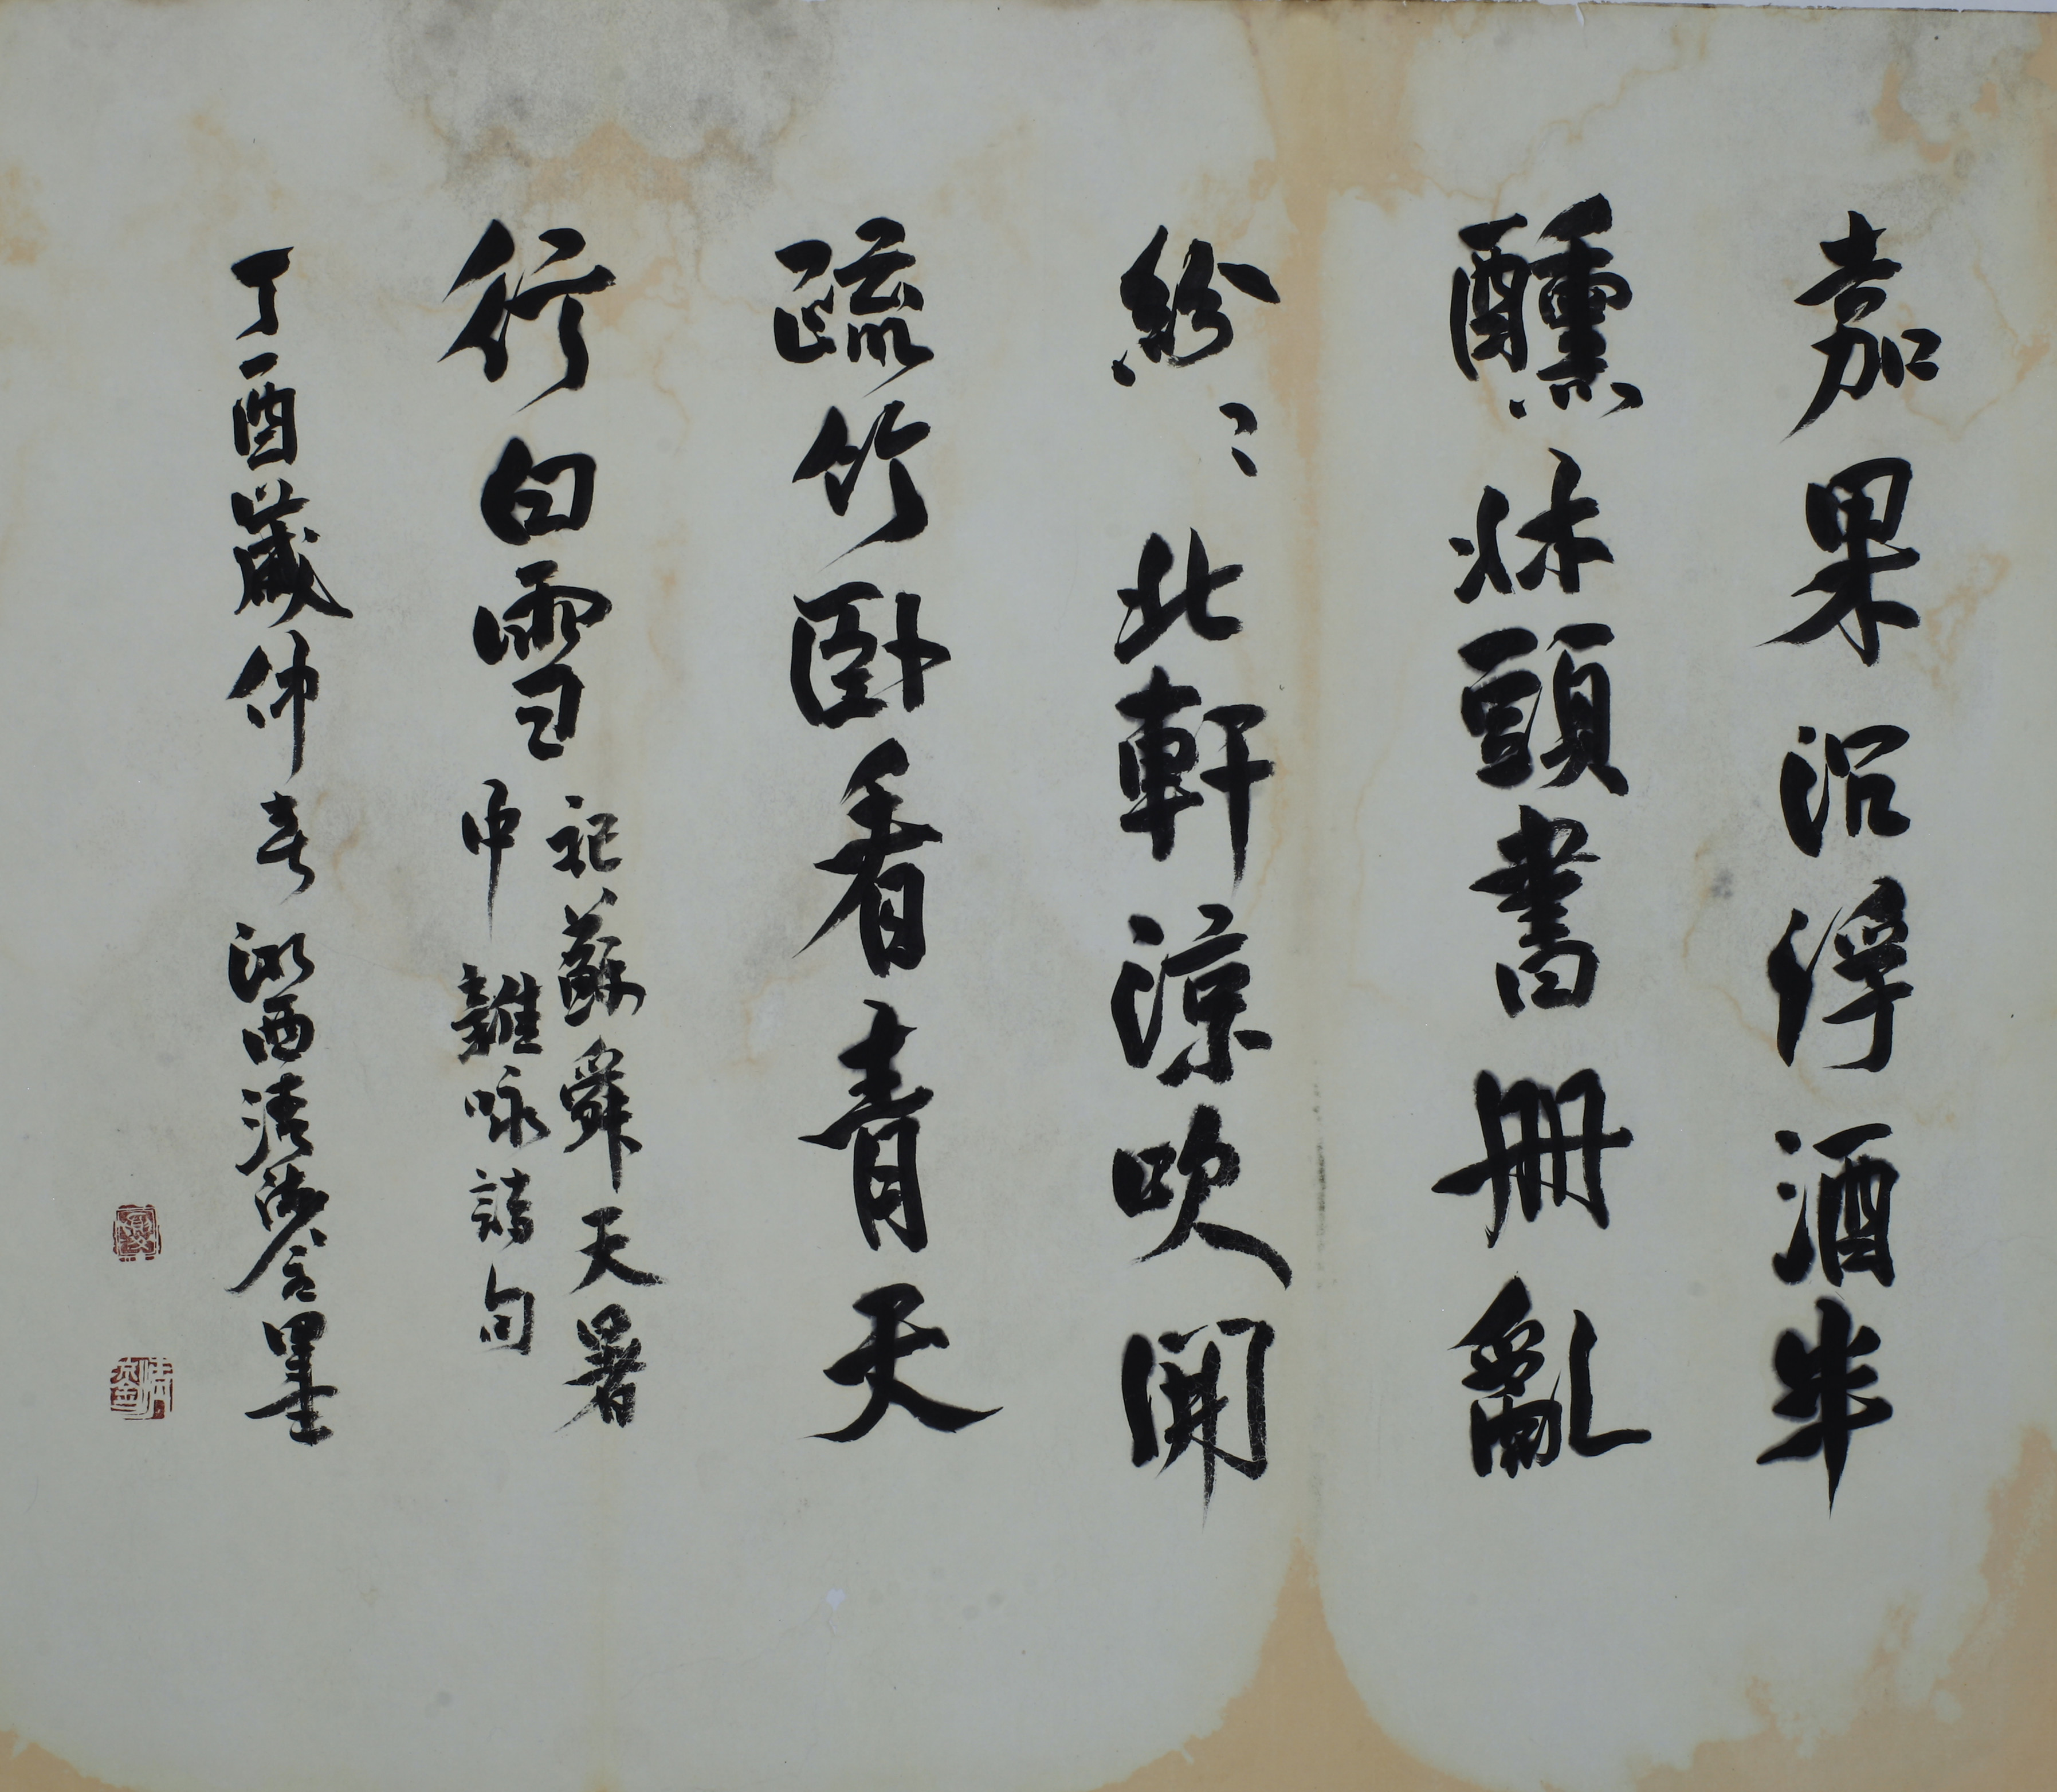 嘉果沉浮酒半
醺牀頭書册亂
紛〻北軒涼吹開
疏竹卧看青天
行白雲
蘇舜天暑
中雜咏詩句
丁酉歲仲春西清含墨